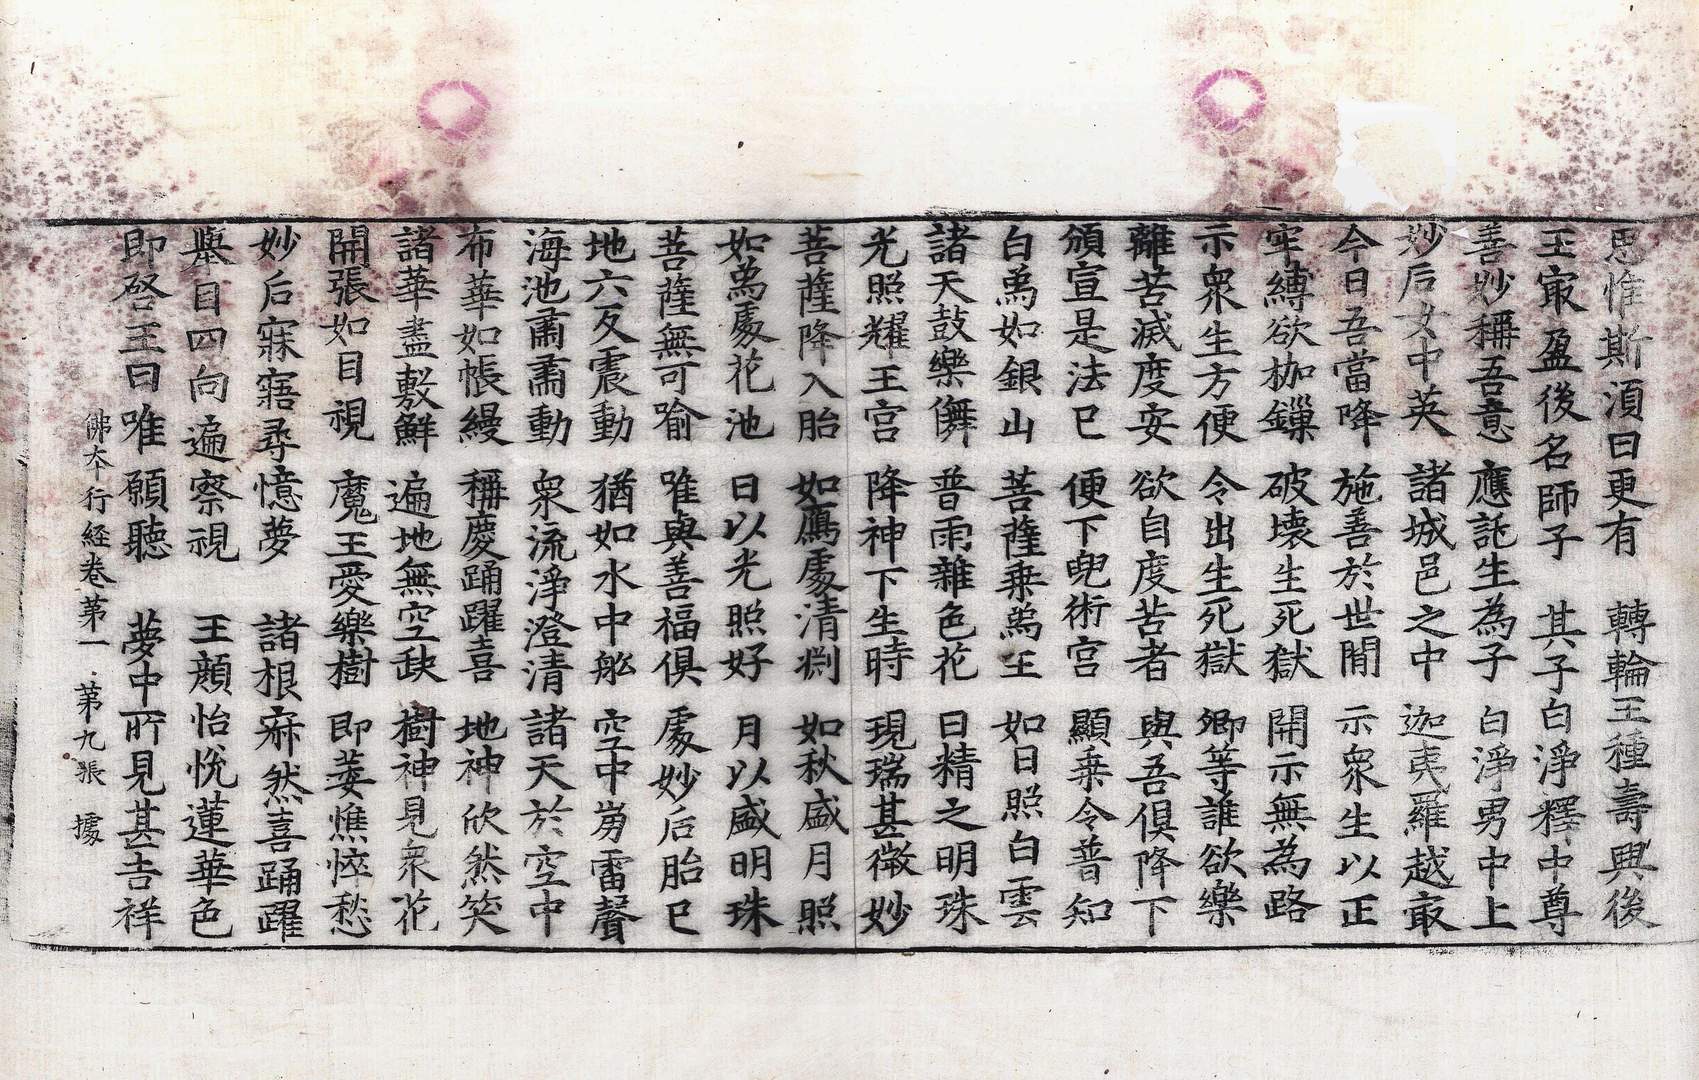 思惟斯湏曰更有 轉輪王種壽興後
王㝡盈後名師子 其子白淨釋中尊
善妙稱吾意 應託生為子 白淨男中上
妙后女中英 諸城邑之中 迦夷羅越㝡
今日吾當降 施善於世間 示衆生以正
牢縛欲枷鏁 破壊生死獄 開示無為路
示衆生方便 令出生死獄 卿等誰欲樂
離苦滅度安 欲自度苦者 與吾俱降下
頒宣是法已 便下兜術宮 顯乗令普知
白爲如銀山 菩薩乗爲王 如日照白雲
諸天鼓樂儛 普雨雜色花 日精之明珠
光照耀王宮 降神下生時 現瑞甚微妙
菩薩降入胎 如鴈處清渕 如秋盛月照
如爲處花池 日以光照好 月以盛明珠
菩薩無可喻 唯與善福俱 處妙后胎已
地六反震動 猶如水中舩 空中崩雷聲
海池肅肅動 衆流淨澄清 諸天於空中
布華如帳縵 稱慶踊躍喜 地神欣然笑
諸華盡敷鮮 遍地無空缺 樹神見衆花
開張如目視 魔王愛樂樹 即萎憔悴愁
妙后寐寤尋憶夢 諸根㾗然喜踊躍
舉目四向遍察視 王顔怡悅蓮華色
即啓王曰唯願聽 夢中所見甚吉祥
佛夲行経卷苐一 苐九張 據